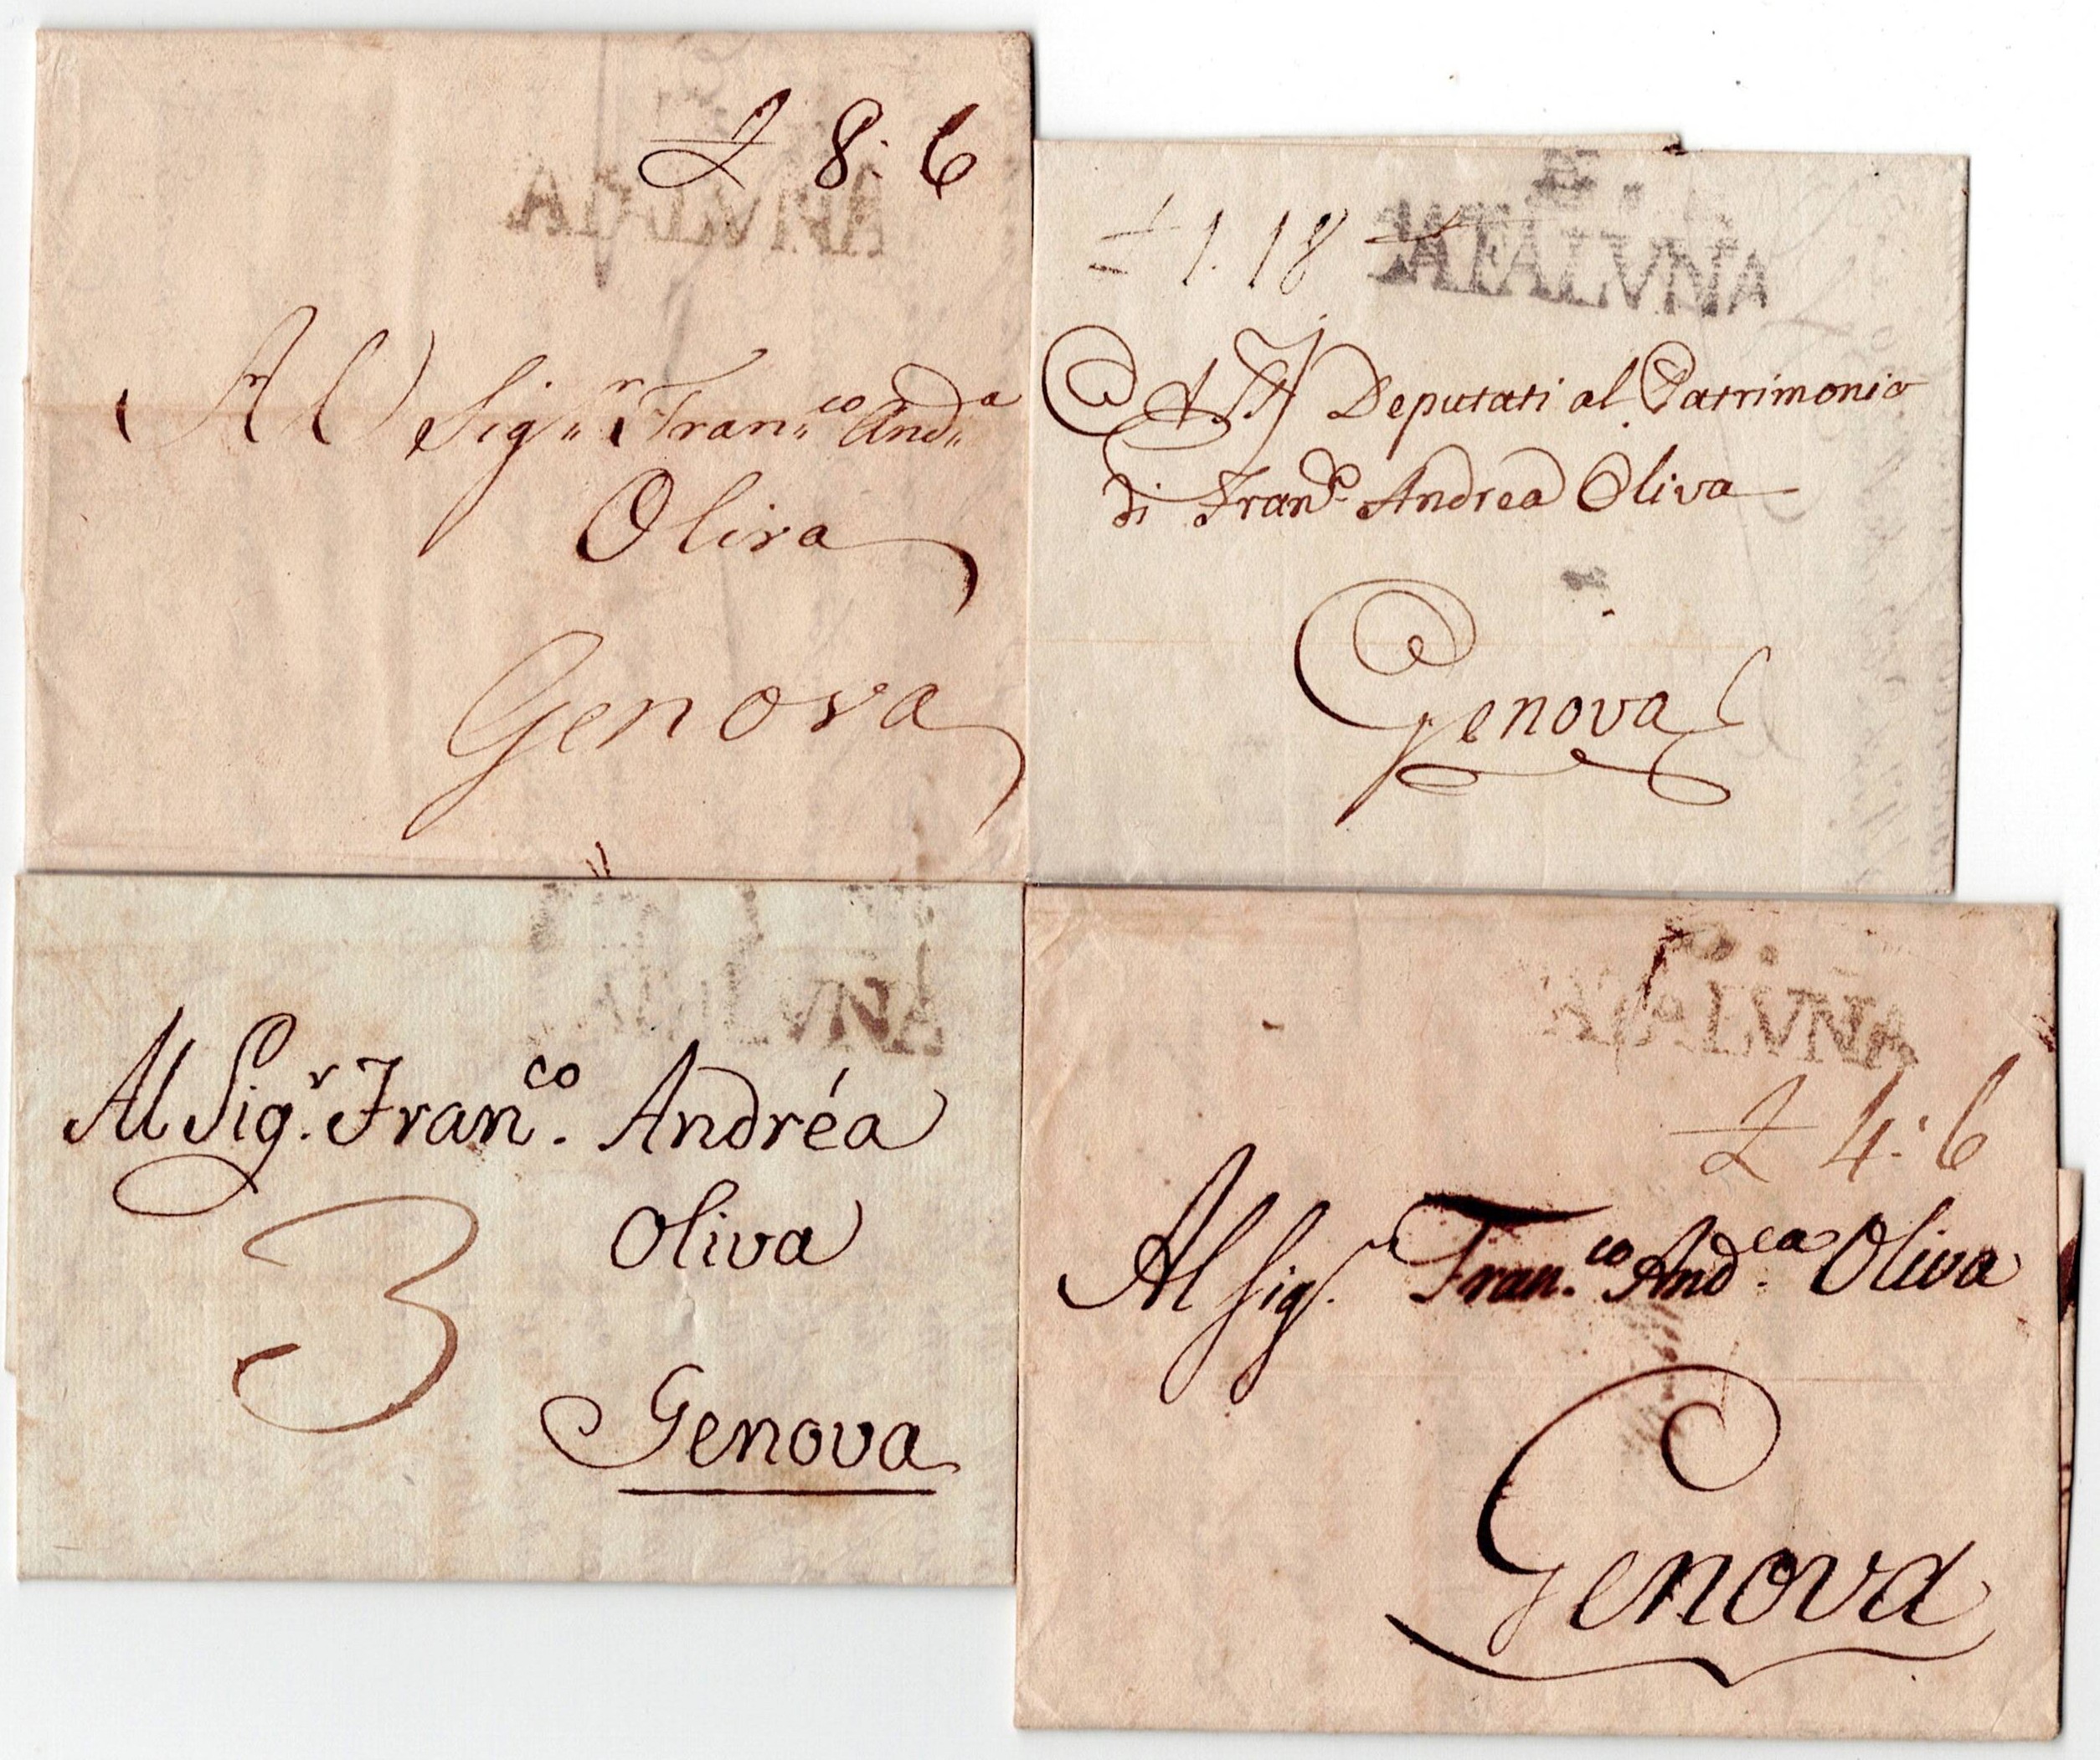 £ 8: 6
ATALVNA
Al Sig.r Fran.co And.a
Oliva
Genova
1. 18
CATALVNA
A SS Deputati al Patrimonio
di Fran.co Andrea Oliva
Genova
ATALVNA
Al Sig.r Fran.co Andréa
Oliva
3
Genova
ATALVNA
£ 4: 6
Al Sig.r Fran.co And.ea Oliva
Genova